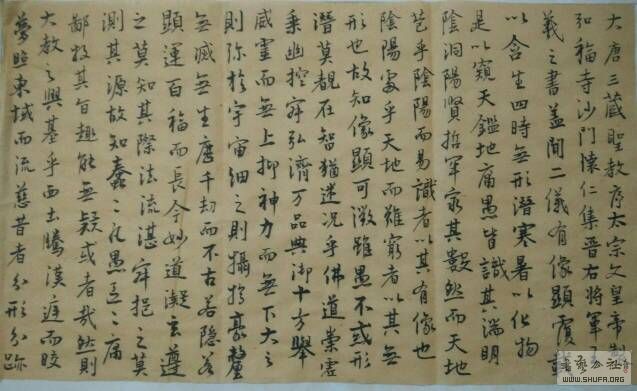 大唐三藏聖教序太宗文皇帝制
弘福寺沙門懷仁集晉右將軍
羲之書蓋聞二儀有像顯覆載
以含生四時無形潛寒暑以化物
是以窺天鑑地庸愚皆識其端明
陰洞陽賢哲罕窮其數然而天地
苞乎陰陽而易識者以其有像也
陰陽處乎天地而難窮者以其無
形也故知像顯可徵雖愚不惑形
潛莫覩在智猶迷況乎佛道崇虛
乘幽控寂弘濟万品典御十方舉
威靈而無上抑神力而無下大之
則彌於宇宙細之則攝於豪釐
無滅無生歷千劫而不古若隱若
顯運百福而長今妙道凝玄遵
之莫知其際法流湛寂挹之莫
測其源故知蠢〻凡愚區〻庸
鄙投其旨趣能無疑或者哉然則
大教之興基乎西土騰漢庭而皎
夢照東域而流慈昔者分形分跡
WWW.SHUFA.ORG